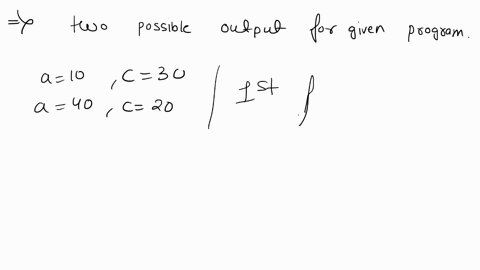 => two possible output for given program.
a = 10 , c = 30 | 1st
a = 40 , c = 20